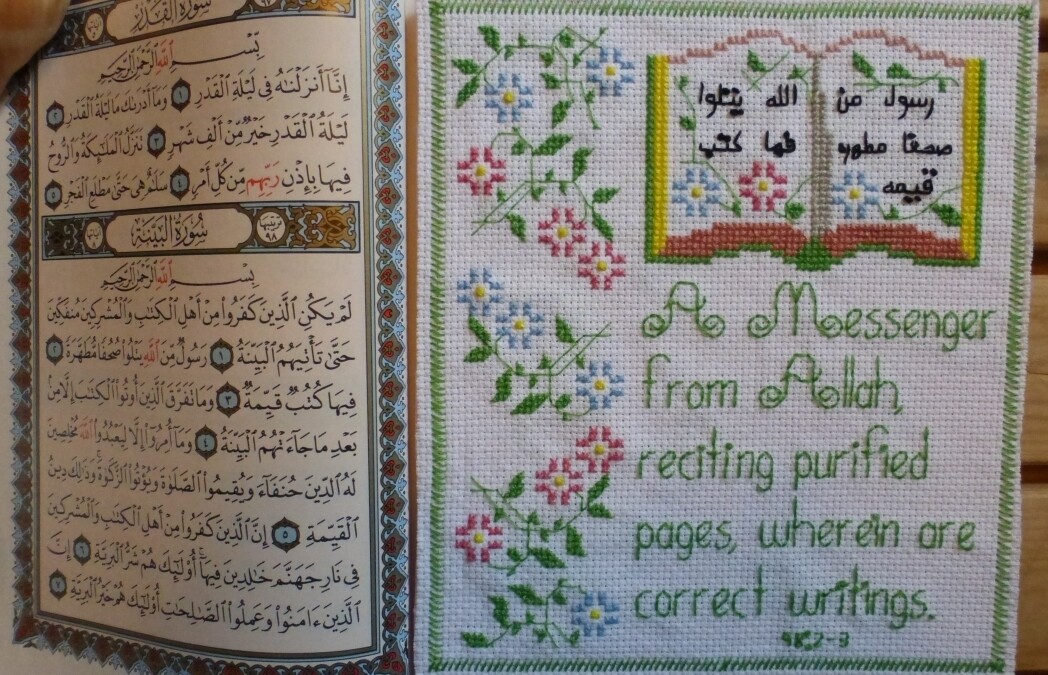 سُورَةُ القَدْرِ
بِسْمِ اللَّهِ الرَّحْمَٰنِ الرَّحِيمِ
إِنَّا أَنزَلْنَٰهُ فِى لَيْلَةِ الْقَدْرِ ١ وَمَا أَدْرَىٰكَ مَا لَيْلَةُ الْقَدْرِ ٢
لَيْلَةُ الْقَدْرِ خَيْرٌ مِّنْ أَلْفِ شَهْرٍ ٣ تَنَزَّلُ الْمَلَٰٓئِكَةُ وَالرُّوحُ
فِيهَا بِإِذْنِ رَبِّهِم مِّن كُلِّ أَمْرٍ ٤ سَلَٰمٌ هِىَ حَتَّىٰ مَطْلَعِ الْفَجْرِ ٥
سُورَةُ البَيِّنَةِ
ترتيبها ٩٨
بِسْمِ اللَّهِ الرَّحْمَٰنِ الرَّحِيمِ
لَمْ يَكُنِ الَّذِينَ كَفَرُوا مِنْ أَهْلِ الْكِتَٰبِ وَالْمُشْرِكِينَ مُنفَكِّينَ
حَتَّىٰ تَأْتِيَهُمُ الْبَيِّنَةُ ١ رَسُولٌ مِّنَ اللَّهِ يَتْلُوا صُحُفًا مُّطَهَّرَةً ٢
فِيهَا كُتُبٌ قَيِّمَةٌ ٣ وَمَا تَفَرَّقَ الَّذِينَ أُوتُوا الْكِتَٰبَ إِلَّا مِن
بَعْدِ مَا جَآءَتْهُمُ الْبَيِّنَةُ ٤ وَمَا أُمِرُوا إِلَّا لِيَعْبُدُوا اللَّهَ مُخْلِصِينَ
لَهُ الدِّينَ حُنَفَآءَ وَيُقِيمُوا الصَّلَوٰةَ وَيُؤْتُوا الزَّكَوٰةَ وَذَٰلِكَ دِينُ
الْقَيِّمَةِ ٥ إِنَّ الَّذِينَ كَفَرُوا مِنْ أَهْلِ الْكِتَٰبِ وَالْمُشْرِكِينَ
فِى نَارِ جَهَنَّمَ خَٰلِدِينَ فِيهَا أُولَٰٓئِكَ هُمْ شَرُّ الْبَرِيَّةِ ٦ إِنَّ
الَّذِينَ ءَامَنُوا وَعَمِلُوا الصَّٰلِحَٰتِ أُولَٰٓئِكَ هُمْ خَيْرُ الْبَرِيَّةِ ٧
رسول من الله يتلوا
صحفا مطهره فيها كتب
قيمه
A Messenger
from Allah,
reciting purified
pages, wherein are
correct writings.
98:2-3